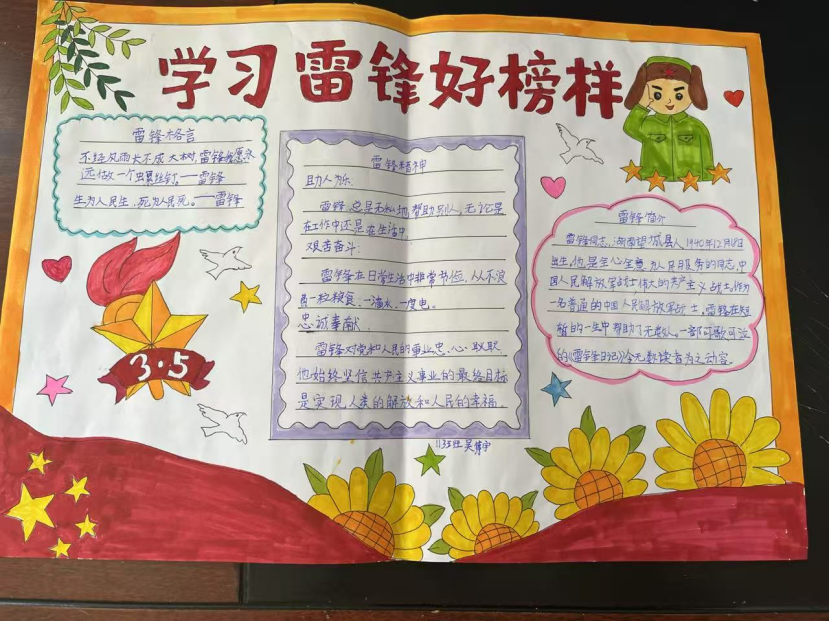 学习雷锋好榜样
雷锋格言
不经风雨长不成大树,雷锋愿永
远做一个螺丝钉。——雷锋
生为人民生,死为人民死。——雷锋
3·5
雷锋精神
助人为乐:
雷锋总是无私地帮助别人,无论是
在工作中还是在生活中。
艰苦奋斗:
雷锋在日常生活中非常节俭,从不浪
费一粒粮食,一滴水,一度电。
忠诚奉献:
雷锋对党和人民的事业忠心耿耿
他始终坚信共产主义事业的最终目标
是实现人类的解放和人民的幸福。
雷锋简介
雷锋同志,湖南望城县人,1940年12月18日
出生,他是全心全意为人民服务的同志,中
国人民解放军战士伟大的共产主义战士,作为
一名普通的中国人民解放军战士,雷锋在短
暂的一生中帮助了无数人,一部可歌可泣
的《雷锋日记》令无数读者为之动容。
班 吴 宇